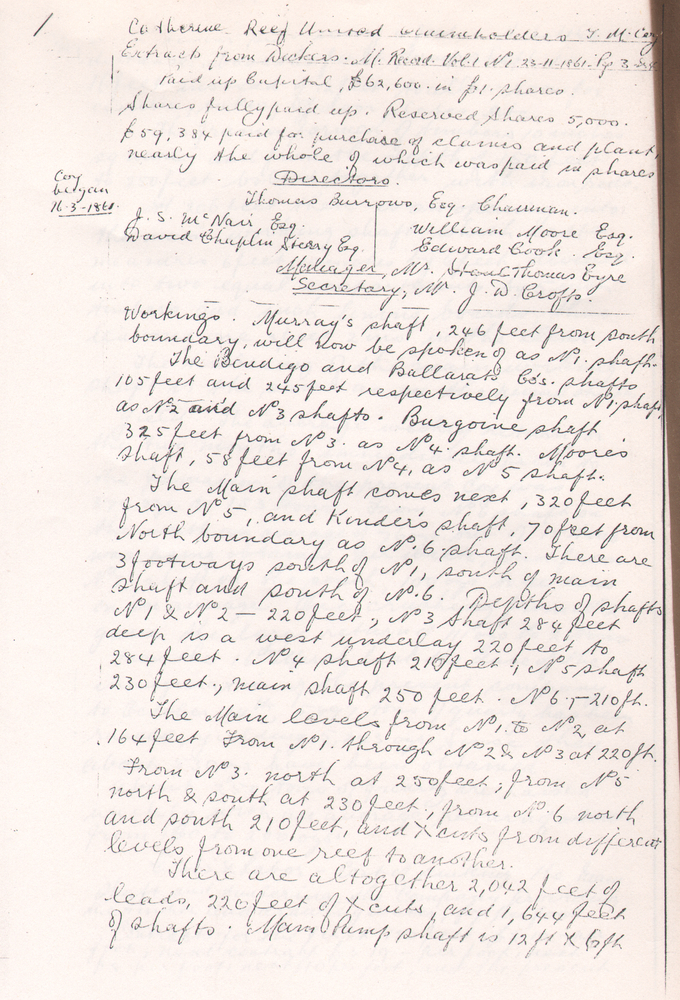 1
Catherine Reef United Claimholders G. M. Coy
Extract from Dickers. M. Record. Vol. 1 No 1. 23-11-1861. Pg 3.
Paid up Capital, £62,600. in £1. shares.
Shares fully paid up. Reserved Shares 5,000.
£59,384 paid for purchase of claims and plant,
nearly the whole of which was paid in shares
Coy
began
16-3-1861.
Directors.
Thomas Burrows, Esq. Chairman.
J. S. McNair Esq.
William Moore Esq.
David Chaplin Sterry Esq.
Edward Cook. Esq.
Manager, Mr. Thomas Eyre
Secretary, Mr. J. D. Crofts.
Workings. Murray's shaft, 246 feet from south
boundary, will now be spoken of as No 1. shaft.
The Bendigo and Ballarat Co's. shafts
105 feet and 245 feet respectively from No 1. shaft
as No 2 and No 3 shafts. Burgoine shaft
325 feet from No 3. as No 4. shaft. Moore's
shaft, 58 feet from No 4, as No 5 shaft.
The Main shaft comes next, 320 feet
from No 5, and Kinder's shaft, 70 feet from
North boundary as No. 6. shaft. There are
3 footways south of No 1, south of main
shaft and south of No. 6. Depths of shafts
No 1 & No 2 — 220 feet, No 3 shaft 284 feet
deep is a west underlay 220 feet to
284 feet. No 4 shaft 215 feet, No 5 shaft
230 feet, main shaft 250 feet. No 6. — 210 ft.
The Main levels from No 1. to No 2, at
164 feet From No 1. through No 2 & No 3 at 220 ft.
From No 3. north at 250 feet, from No 5
north & south at 230 feet, from No. 6 north
and south 210 feet, and X cuts from different
levels from one reef to another.
There are altogether 2,042 feet of
leads, 220 feet of X cuts, and 1,644 feet
of shafts. Main Pump shaft is 12 ft X 6 ft